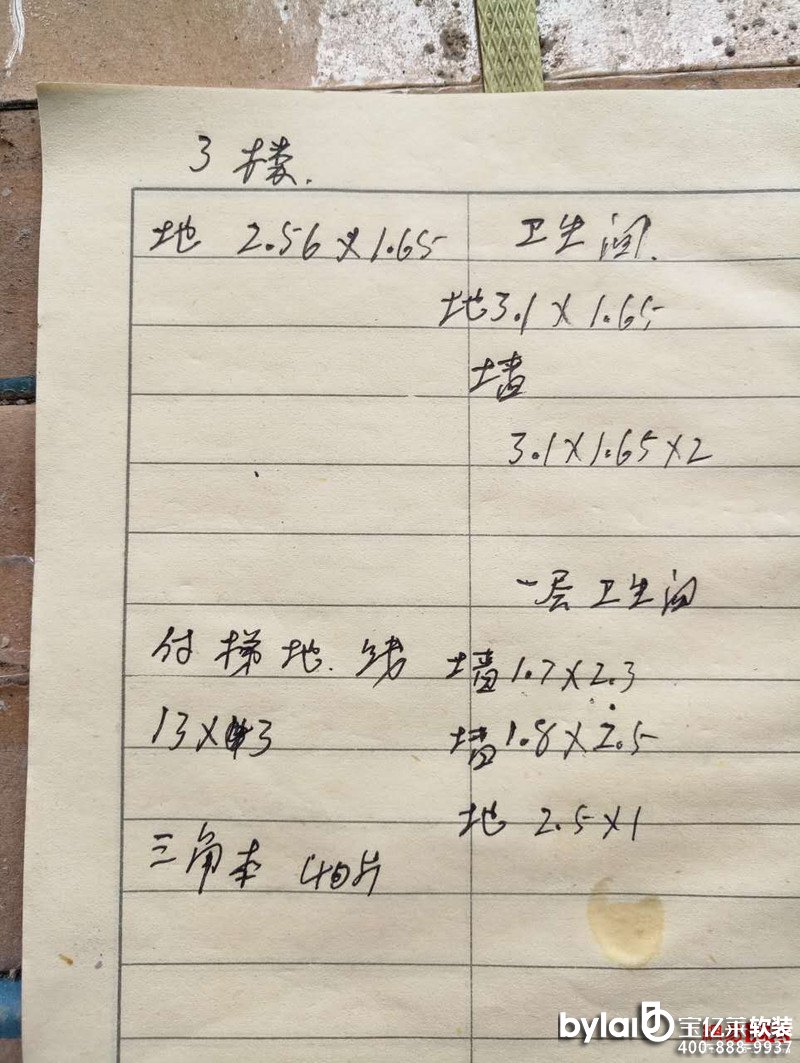 3楼.
地 2.56×1.65
卫生间.
地3.1×1.65
墙
3.1×1.65×2
一层卫生间
付梯地.线
墙1.7×2.3
13×3
墙1.8×2.5
地 2.5×1
三角本 40片
bylai 宝亿莱软装
400-888-9937